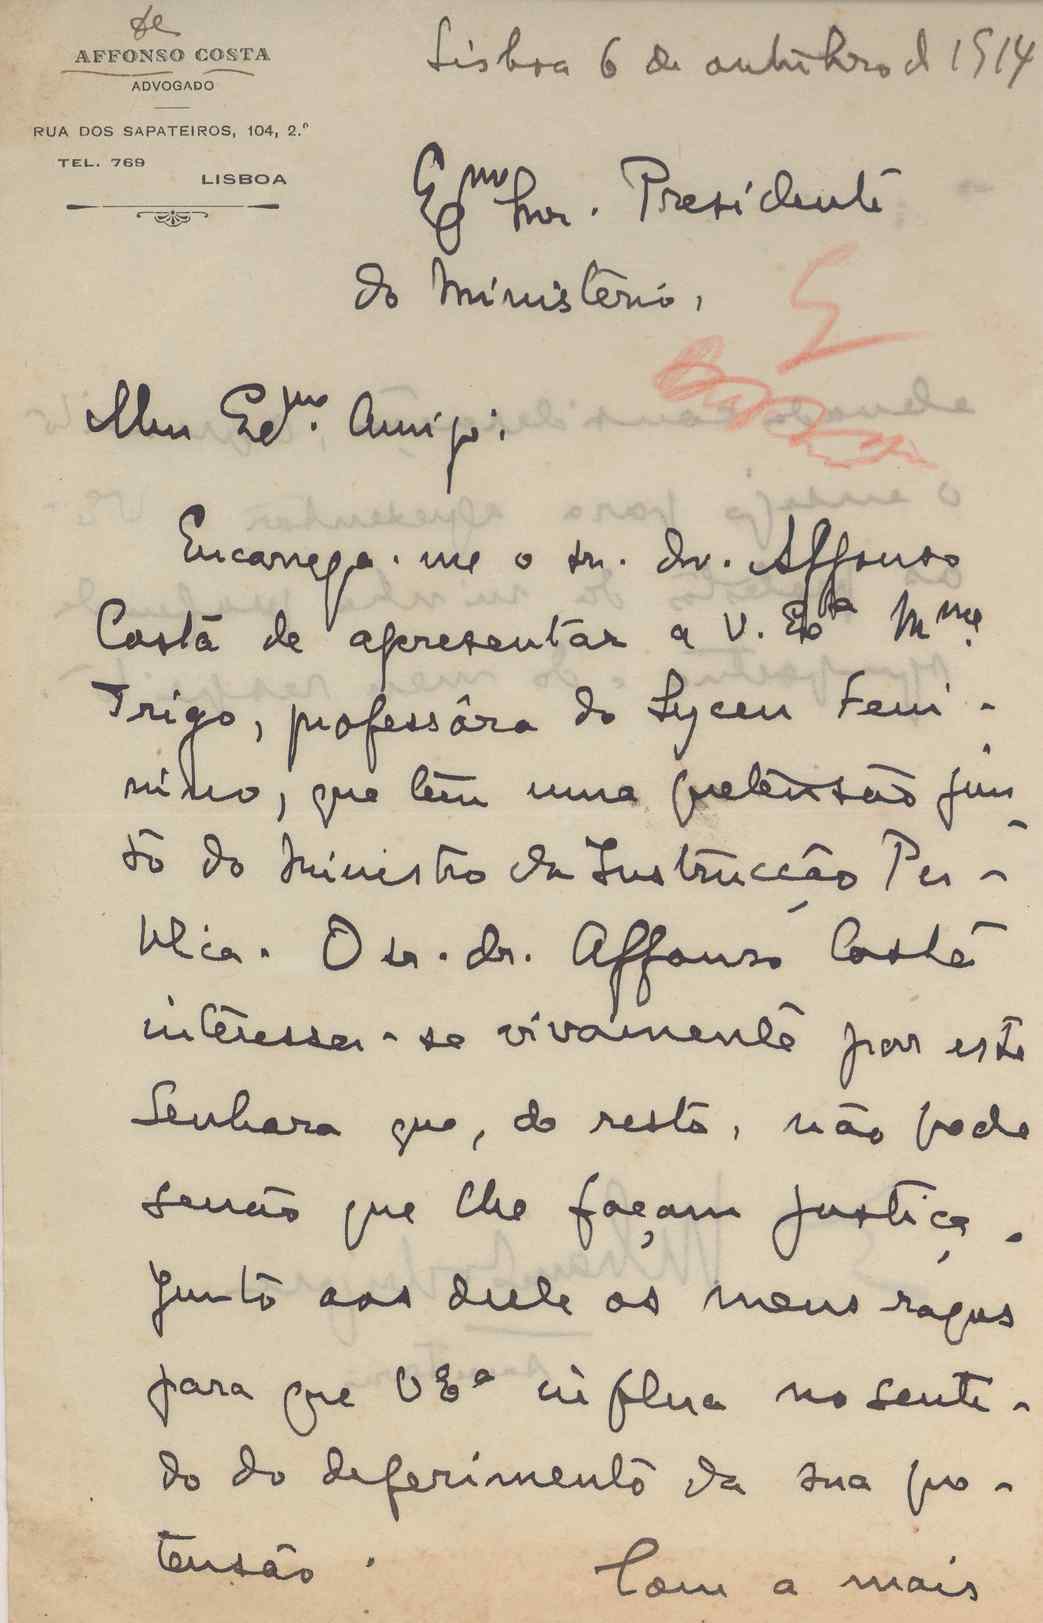 de
AFFONSO COSTA
ADVOGADO
RUA DOS SAPATEIROS, 104, 2.º
TEL. 769
LISBOA
Lisboa 6 de outubro d 1914
Exmo Snr. Presidente
do Ministerio,
Meu Exmo. Amigo:
Encarrega-me o sr. dr. Affonso
Costa de apresentar a V. Exa Mme.
Trigo, professôra do Lyceu Femi-
nino, que têm uma pretensão jun
to do Ministro da Instrucção Pu-
blica. O sr. dr. Affonso Costa
interessa-se vivamente por esta
Senhora que, de resto, não pede
senão que lhe façam justiça.
Junto aos dele os meus rogos
para que V Exa influa no senti-
do do deferimento da sua pre-
tensão.
Com a mais